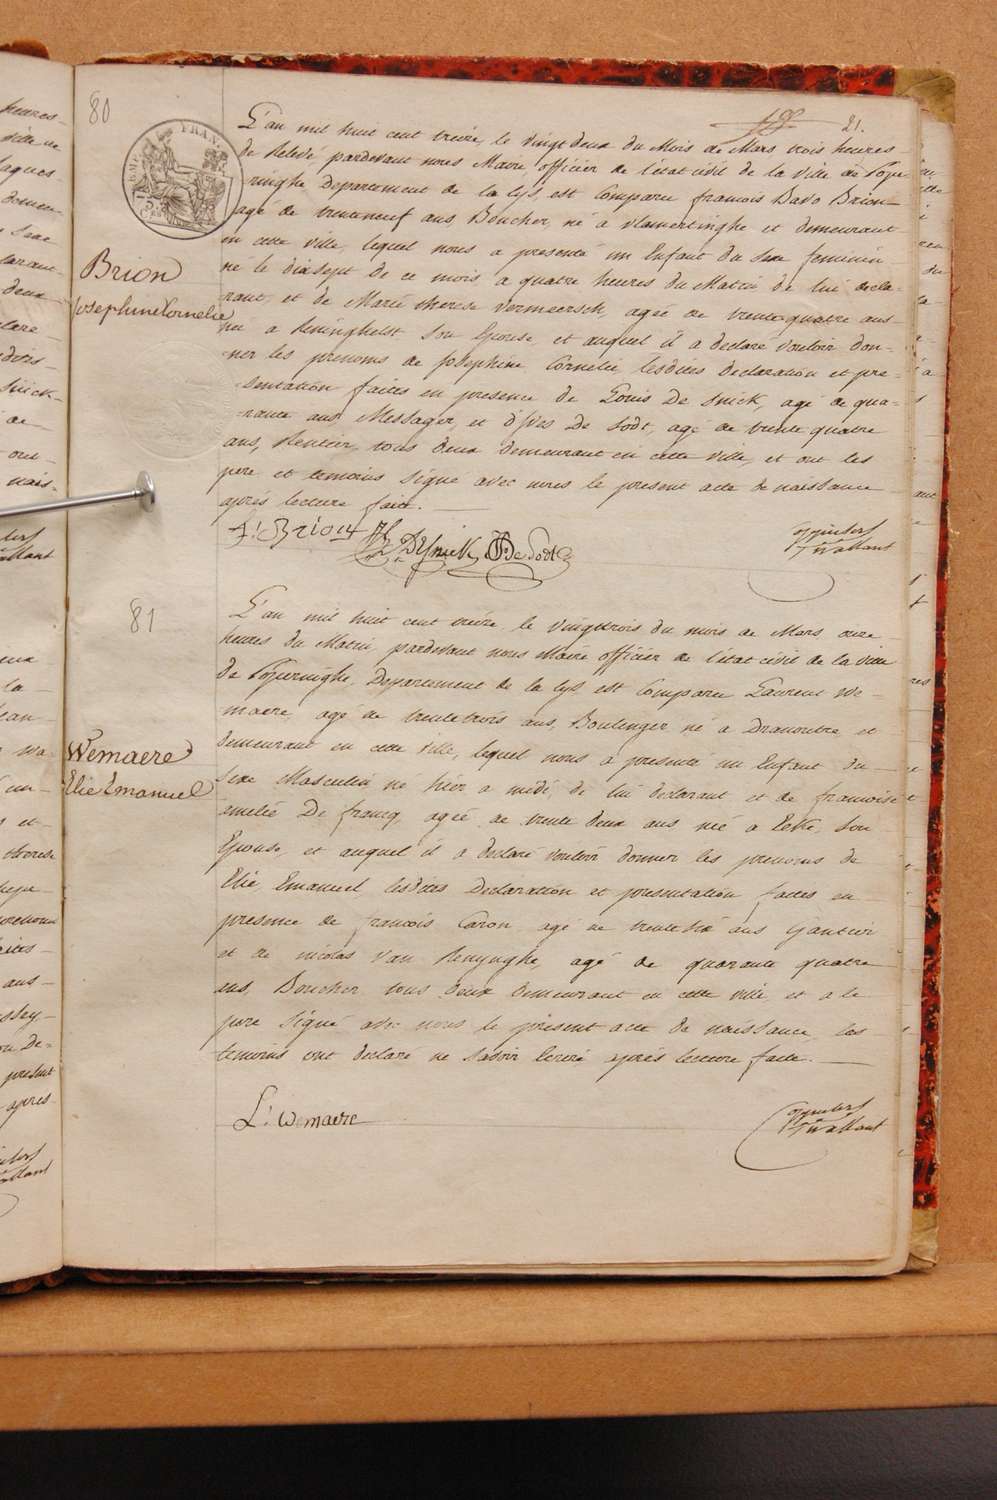 80
21.
L'an mil huit cent treize, le vingt deux du Mois de Mars trois heures
de Relevé pardevant nous Maire, officier de l'état civil de la ville de Pope
ringhe Departement de la Lys, est Comparu francois Bavo Brion
agé de trenteneuf ans, Boucher, né a vlamertinghe et demeurant
en cette ville, lequel nous a presenté un Enfant du Sexe feminin
né le dixsept de ce mois a quatre heures du Matin de lui decla-
rant, et de Marie therese vermeersch, agée de trente quatre ans
née a Reninghelst, Son Epouse, et auquel il a declaré vouloir don-
ner les prenoms de Josephine Cornelie lesdites declaration et pre-
sentation faites en presence de Louis De Snick, agé de qua-
rante ans, Messager, et d'yves De Sodt, agé de trente quatre
ans, Rentier, tous deux demeurant en cette ville, et ont les
pere et temoins Signé avec nous le present acte de naissance
après lecture faite.
Brion
Josephine Cornelie
f: Brion
L: DeSnick
De Sodt
81
L'an mil huit cent treize le vingttrois du mois de Mars onze
heures du Matin, pardevant nous Maire officier de l'état civil de la ville
de Poperinghe, Departement de la Lys, est Comparu Laurent We-
maere, agé de trentetrois ans, Boulanger né a Dranoutre, et
demeurant en cette ville, lequel nous a presenté un Enfant du
Sexe Masculin né hier a midi, de lui declarant et de francoise
amelie De francq, agée de trente deux ans née a Eecke, Son
Epouse, et auquel il a declaré vouloir donner les prenoms de
Elie, Emanuel, lesdites Declaration et presentation faites en
presence de francois Caron, agé de trentesix ans Gantier
et de nicolas Van Renynghe, agé de quarante quatre
ans, Boucher tous deux demeurant en cette ville, et a le
pere Signé avec nous le present acte de naissance, les
temoins ont declaré ne Savoir Ecrire, après lecture faite.
Wemaere
Elie Emanuel
L: Wemaere